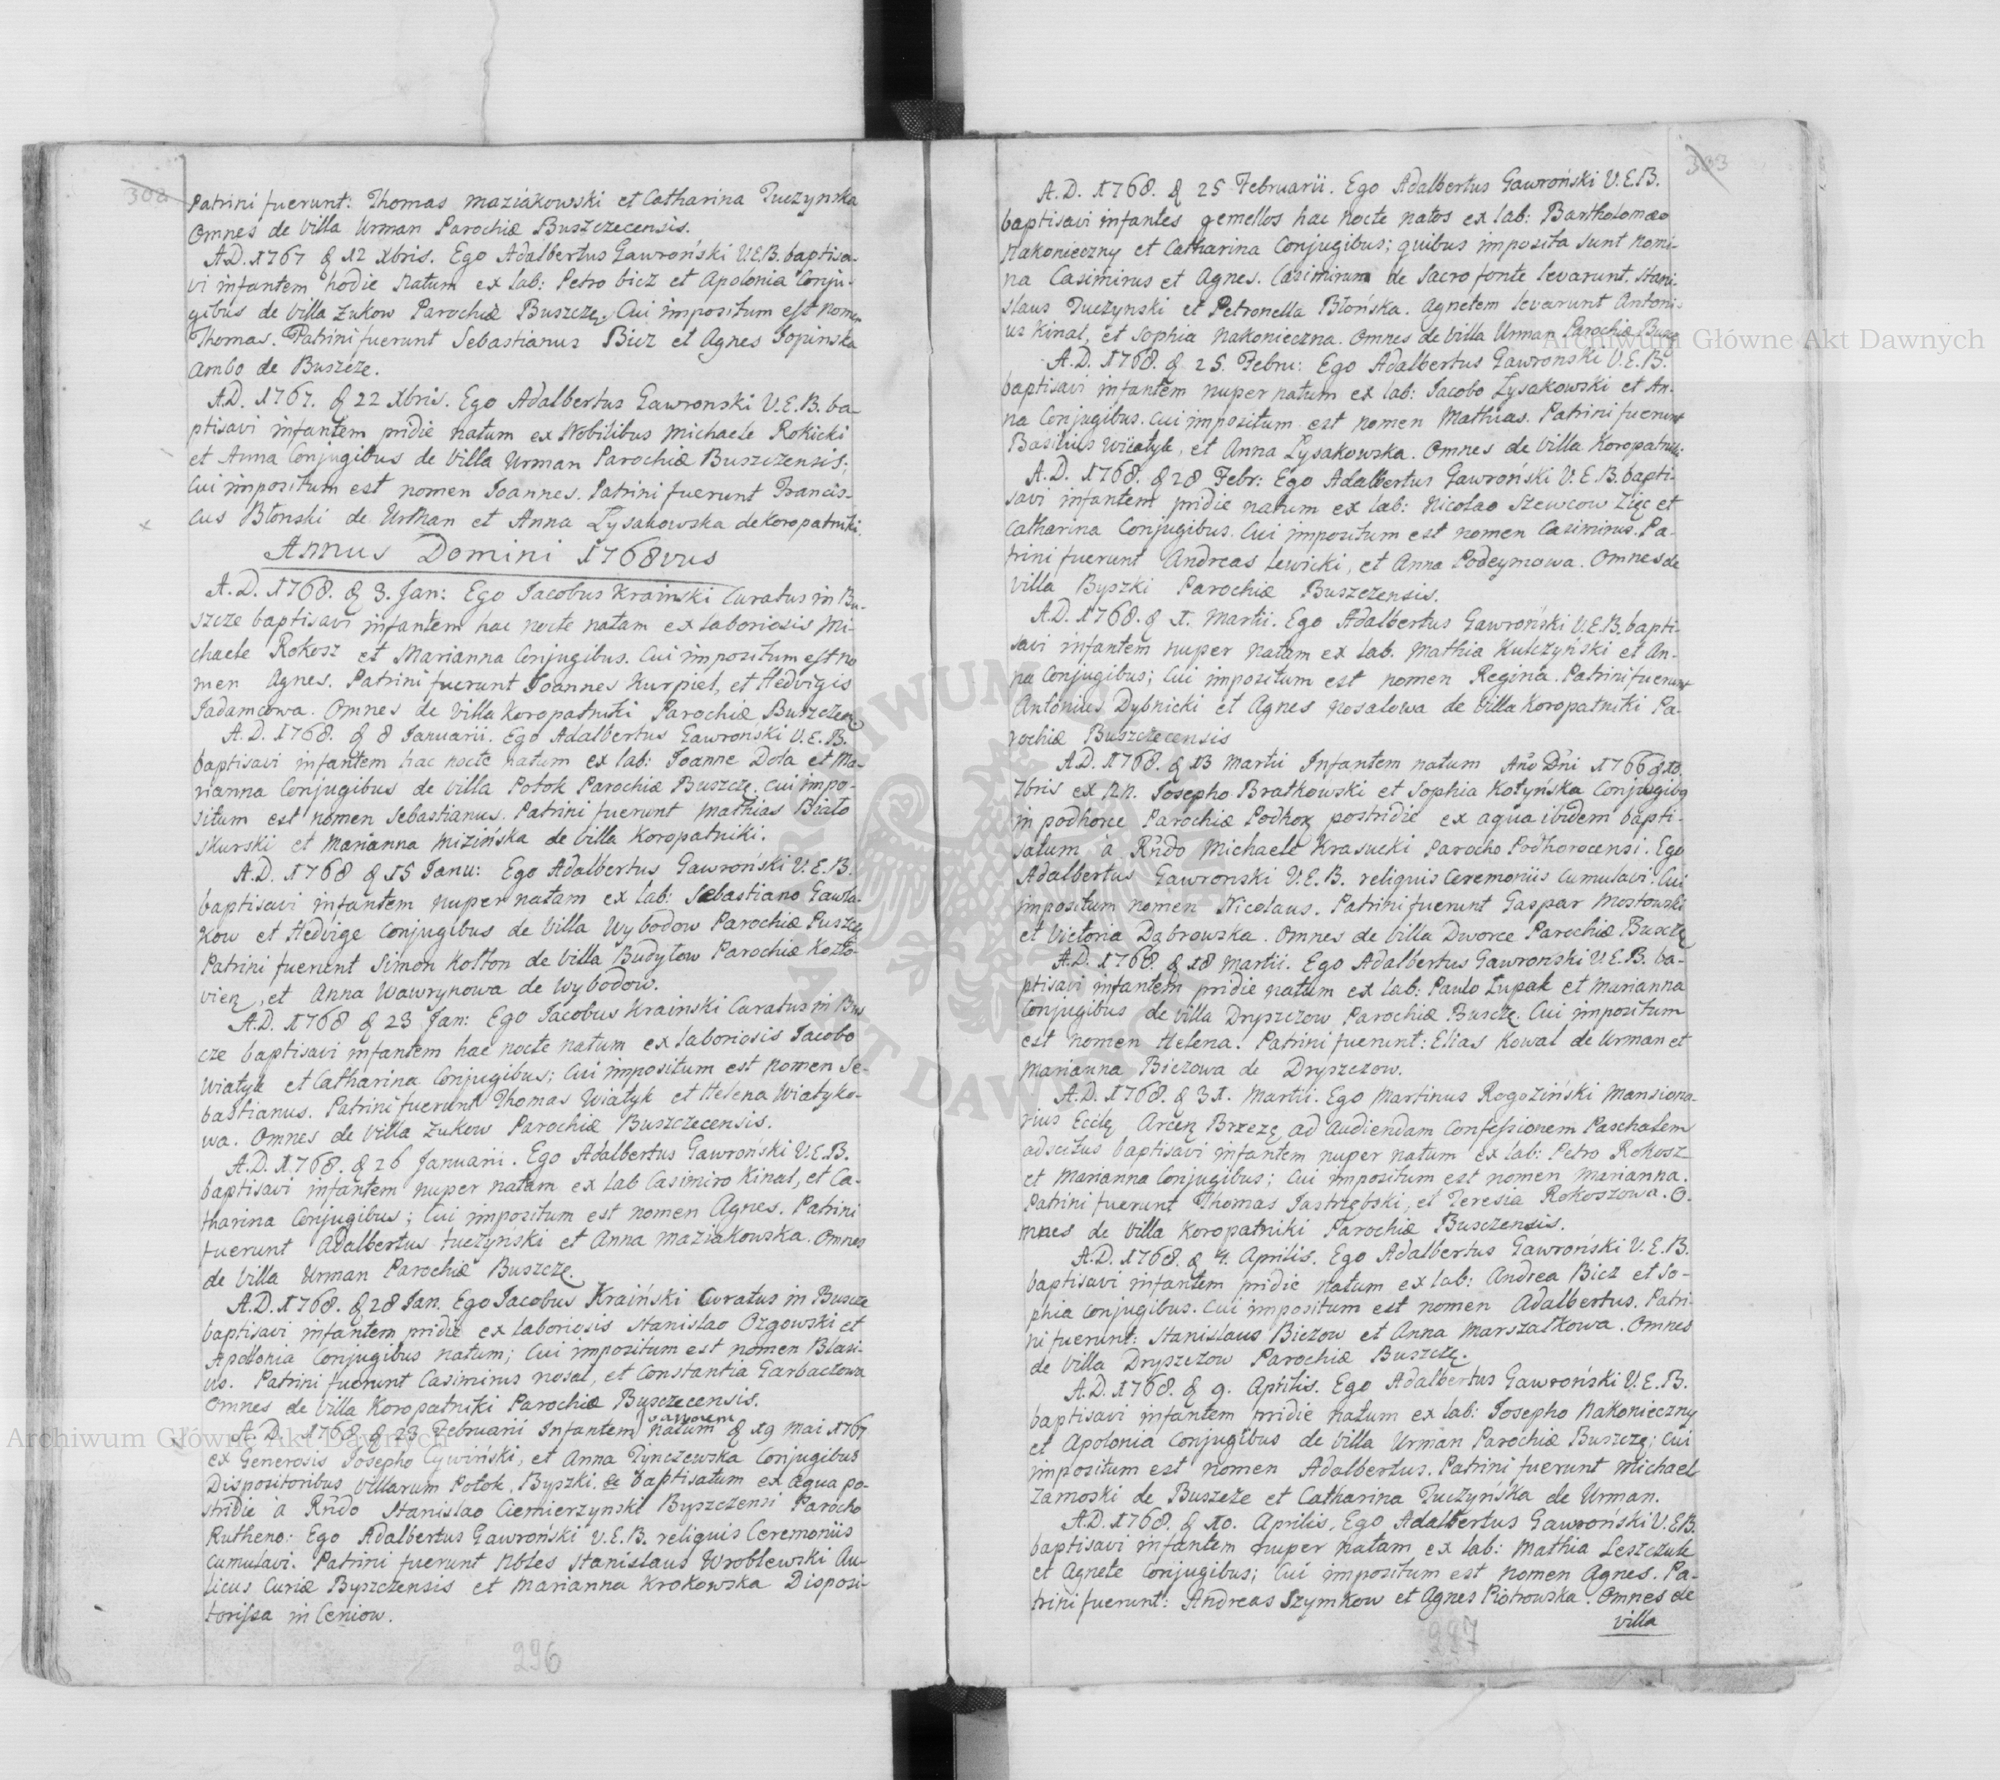 302
Patrini fuerunt: Thomas Maziakowski et Catharina Tuczynska
Omnes de Villa Urman Parochiæ Buszczecensis.
A.D. 1767 & 12 Xbris. Ego Adalbertus Gawroński V.E.B. baptisa-
vi infantem hodie Natum ex lab: Petro bicz et Apolonia Conju-
gibus de Villa Żukow Parochiæ Buszczę. Cui impositum est Nomen
Thomas. Patrini fuerunt Sebastianus Bicz et Agnes
Ambo de Buszcze.
A.D. 1767. & 22 Xbris. Ego Adalbertus Gawronski V.E.B. ba
ptisavi infantem pridie natum ex Nobilibus Michaele Rokicki
et Anna Conjugibus de Villa Urman Parochiæ Buszczensis;
Cui impositum est nomen Joannes. Patrini fuerunt Francis-
cus Błonski de Urman et Anna Łysakowska de Koropatniki.
Annus Domini 1768vus
A.D. 1768. & 3. Jan: Ego Jacobus Krainski Curatus in Bu-
szcze baptisavi infantem hac nocte natam ex laboriosis Mi-
chaele Rokosz et Marianna Conjugibus. Cui impositum est no
men Agnes. Patrini fuerunt Joannes Kurpiel, et Hedvigis
Jadamcowa. Omnes de Villa Koropatniki Parochiæ Buszczeń.
A.D. 1768. & 8 Januarii. Ego Adalbertus Gawronski V.E.B.
baptisavi infantem hac nocte natum ex lab: Joanne Dola et Ma-
rianna Conjugibus de Villa Potok Parochiæ Buszczę. cui impo-
situm est nomen Sebastianus. Patrini fuerunt Mathias Biało
skurski et Marianna Mizińska de Villa Koropatniki.
A.D. 1768 & 15 Janu: Ego Adalbertus Gawroński V.E.B.
baptisavi infantem nuper natam ex lab: Sebastiano Gawla-
kow et Hedvige Conjugibus de Villa Wybodow Parochiæ Puszczę
Patrini fuerunt Simon Kolton de Villa Budylow Parochiæ Kozło-
vień, et Anna Wawrynowa de Wybodow.
A.D. 1768 & 23 Jan: Ego Jacobus Krainski Curatus in Bus
cze baptisavi infantem hac nocte natum ex laboriosis Jacobo
Wiatyk et Catharina Conjugibus; Cui impositum est nomen Se-
bastianus. Patrini fuerunt Thomas Wiatyk et Helena Wiatyko-
wa. Omnes de Villa Żukow Parochiæ Buszczecensis.
A.D. 1768. & 26 Januarii. Ego Adalbertus Gawroński V.E.B.
baptisavi infantem nuper natam ex lab Casimiro Kinal, et Ca-
tharina Conjugibus; Cui impositum est nomen Agnes. Patrini
fuerunt Adalbertus Tuczyński et Anna Maziakowska. Omnes
de Villa Urman Parochiæ Buszczę.
A.D. 1768. & 28 Jan. Ego Jacobus Kraiński Curatus in Buscze
baptisavi infantem pridie ex laboriosis Stanislao Ozgowski et
Apollonia Conjugibus natum; Cui impositum est nomen Blasi-
us. Patrini fuerunt Casimirus Nosal, et Constantia Garbaczowa
Omnes de Villa Koropatniki Parochiæ Buszczecensis.
A.D. 1768 & 23 Februarii Infantem natum & 19 Mai 1767
ex Generosis Josepho Cywiński, et Anna Tynczewska Conjugibus
Dispositoribus Villarum Potok, Byszki. & baptisatum ex aqua po-
stridie à Rńdo Stanislao Ciemierzynski Byszczensi Parocho
Rutheno: Ego Adalbertus Gawroński V.E.B. reliquis Ceremoniis
cumulavi. Patrini fuerunt Nbles Stanislaus Wroblewski Au-
licus Curiæ Byszczensis et Marianna Krokowska Disposi-
torissa in Ceniow.
296
303
A.D. 1768. & 25 Februarii. Ego Adalbertus Gawroński V.E.B.
baptisavi infantes gemellos hac nocte natos ex lab: Bartholomæo
Nakonieczny et Catharina Conjugibus; quibus imposita sunt Nomi-
na Casimirus et Agnes. Casimirum de Sacro fonte levarunt. Stani-
slaus Tuczynski et Petronella Błońska. Agnetem levarunt Antoni-
us Kinal, et Sophia Nakonieczna. Omnes de Villa Urman Parochiæ Busz
A.D. 1768. & 25. Febru: Ego Adalbertus Gawronski V.E.B.
baptisavi infantem nuper natum ex lab: Jacobo Łysakowski et An-
na Conjugibus. Cui impositum est nomen Mathias. Patrini fuerunt
Basilius Wiatyk, et Anna Łysakowska. Omnes de Villa Koropatniki
A.D. 1768. & 28 Febr: Ego Adalbertus Gawroński V.E.B. bapti-
savi infantem pridie natum ex lab: Nicolao Szewcow Zięć et
Catharina Conjugibus. Cui impositum est nomen Casimirus. Pa-
trini fuerunt Andreas Lewicki, et Anna Podeymowa. Omnes de
Villa Byszki Parochiæ Buszczensis.
A.D. 1768. & 1. Martii. Ego Adalbertus Gawroński V.E.B. bapti-
savi infantem nuper natam ex lab. Mathia Kulczyński et An-
na Conjugibus; Cui impositum est nomen Regina. Patrini fuerunt
Antonius Dybnicki et Agnes Nosalowa de Villa Koropatniki Pa-
rochiæ Buszczecensis
A.D. 1768. & 13 Martii Infantem natum Ańo Dńi 1766 & 10.
7bris ex NN. Josepho Bratkowski et Sophia Kotyńska Conjugibus
in podhorce Parochiæ Podhor postridie ex aqua ibidem bapti-
satum à Rńdo Michaele Krasucki Parocho Podhorocensi. Ego
Adalbertus Gawronski V.E.B. reliquis Ceremoniis cumulavi. Cui
impositum nomen Nicolaus. Patrini fuerunt Gaspar Mostowski
et Victoria Dąbrowska. Omnes de Villa Dworce Parochiæ Buszczę
A.D. 1768. & 18 Martii. Ego Adalbertus Gawronski V.E.B. ba-
ptisavi infantem pridie natum ex lab: Paulo Łupak et Marianna
Conjugibus de Villa Dryszczow Parochiæ Buszczę. Cui impositum
est nomen Helena. Patrini fuerunt: Elias Kowal de Urman et
Marianna Biczowa de Dryszczow.
A.D. 1768. & 31. Martii. Ego Martinus Rogoziński Mansiona-
rius Ecclę Arceń Brzezę ad audiendam Confessionem Paschalem
adscitus baptisavi infantem nuper natam ex lab: Petro Rokosz
et Marianna Conjugibus; Cui impositum est nomen Marianna.
Patrini fuerunt Thomas Jastrzębski, et Teresia Rokoszowa. O-
mnes de Villa Koropatniki Parochiæ Busczensis.
A.D. 1768. & 4. Aprilis. Ego Adalbertus Gawroński V.E.B.
baptisavi infantem pridie natum ex lab: Andrea Bicz et So-
phia Conjugibus. Cui impositum est nomen Adalbertus. Patri-
ni fuerunt: Stanislaus Biczow et Anna Marszałkowa. Omnes
de Villa Dryszczow Parochiæ Buszczę.
A.D. 1768. & 9. Aprilis. Ego Adalbertus Gawroński V.E.B.
baptisavi infantem pridie natum ex lab: Josepho Nakonieczny
et Apolonia Conjugibus de Villa Urman Parochiæ Buszczę; Cui
impositum est nomen Adalbertus. Patrini fuerunt Michael
Zamoski de Buszcze et Catharina Tuczyńska de Urman.
A.D. 1768. & 10. Aprilis. Ego Adalbertus Gawroński V.E.B.
baptisavi infantem nuper natam ex lab: Mathia Leszczuk
et Agnete Conjugibus; Cui impositum est nomen Agnes. Pa-
trini fuerunt: Andreas Szymkow et Agnes Piotrowska. Omnes de
Villa
297
Archiwum Główne Akt Dawnych
Archiwum Główne Akt Dawnych
ARCHIWUM AKT DAWNYCH